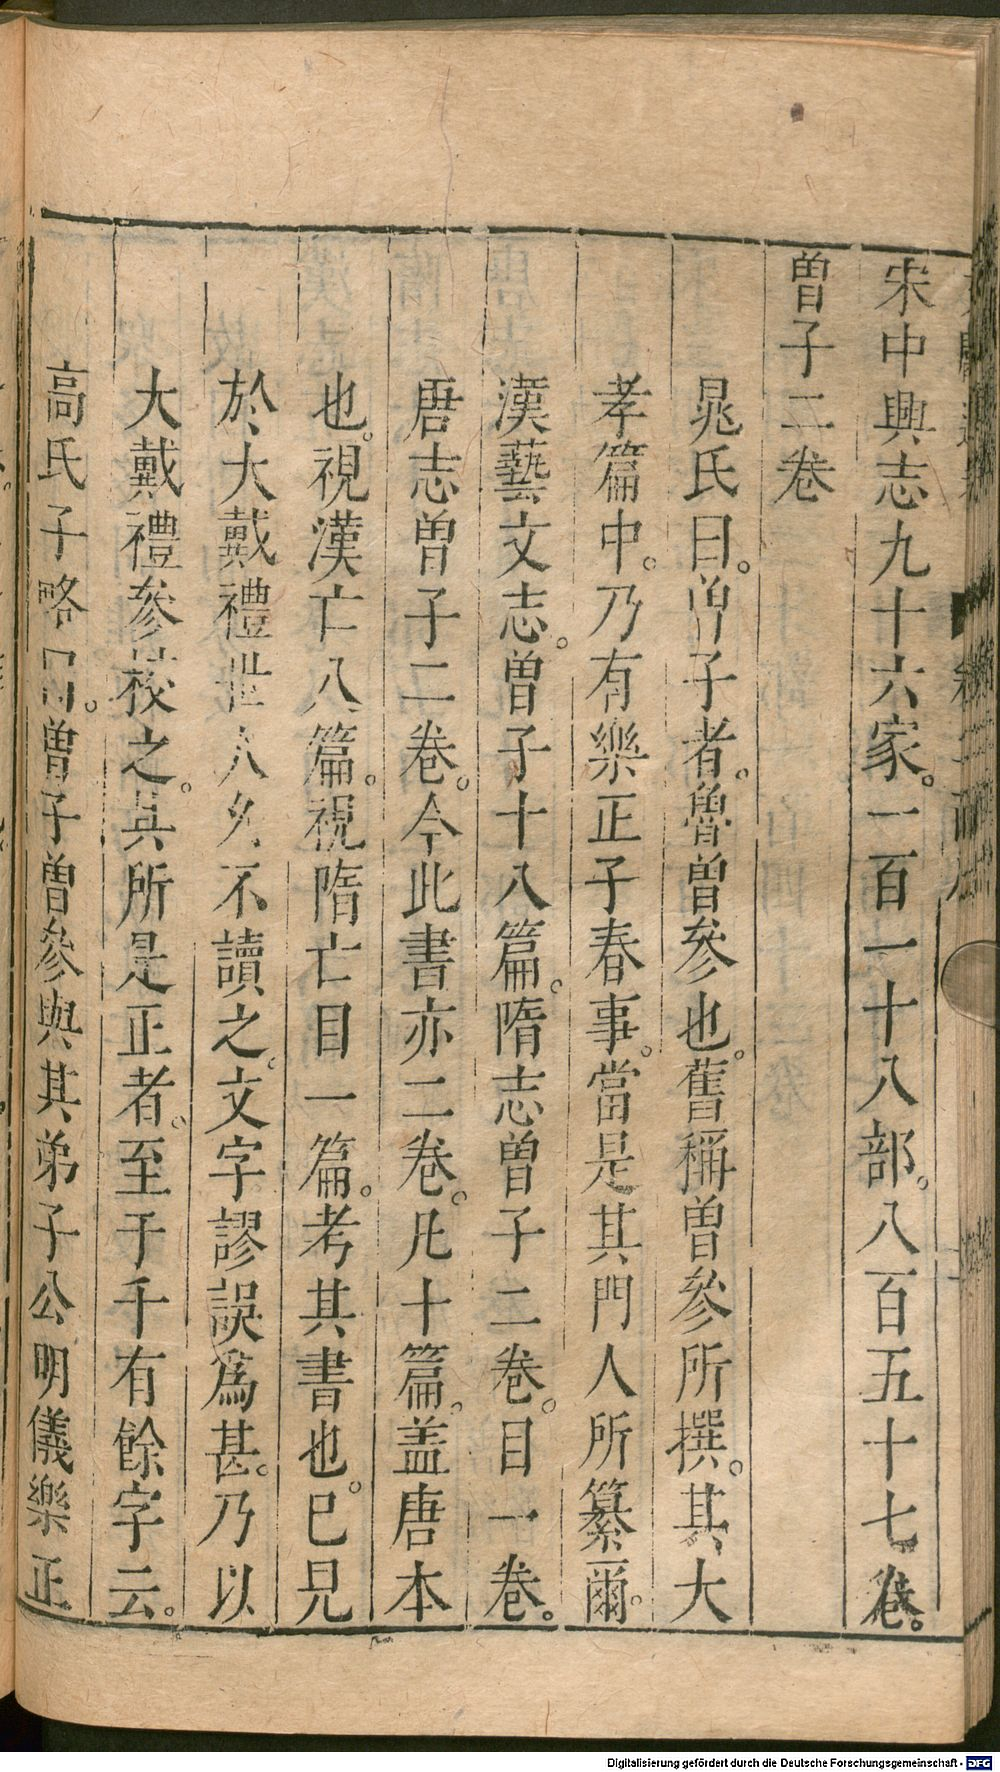 宋中興志九十六家。一百一十八部。八百五十七卷。
曽子二卷
晁氏曰。曽子者。魯曽參也。舊稱曽參所撰。其大
孝篇中。乃有樂正子春事。當是其門人所纂爾。
漢藝文志。曽子十八篇。隋志曽子二卷。目一卷。
唐志曽子二卷。今此書亦二卷。凡十篇。盖唐本
也。視漢亡八篇。視隋亡目一篇。考其書也。已見
於大戴禮世人久不讀之。文字謬誤爲甚。乃以
大戴禮參校之。其所是正者。至于千有餘字云。
高氏子略曰。曽子曽參與其弟子公明儀樂正
Digitalisierung gefördert durch die Deutsche Forschungsgemeinschaft - DFG